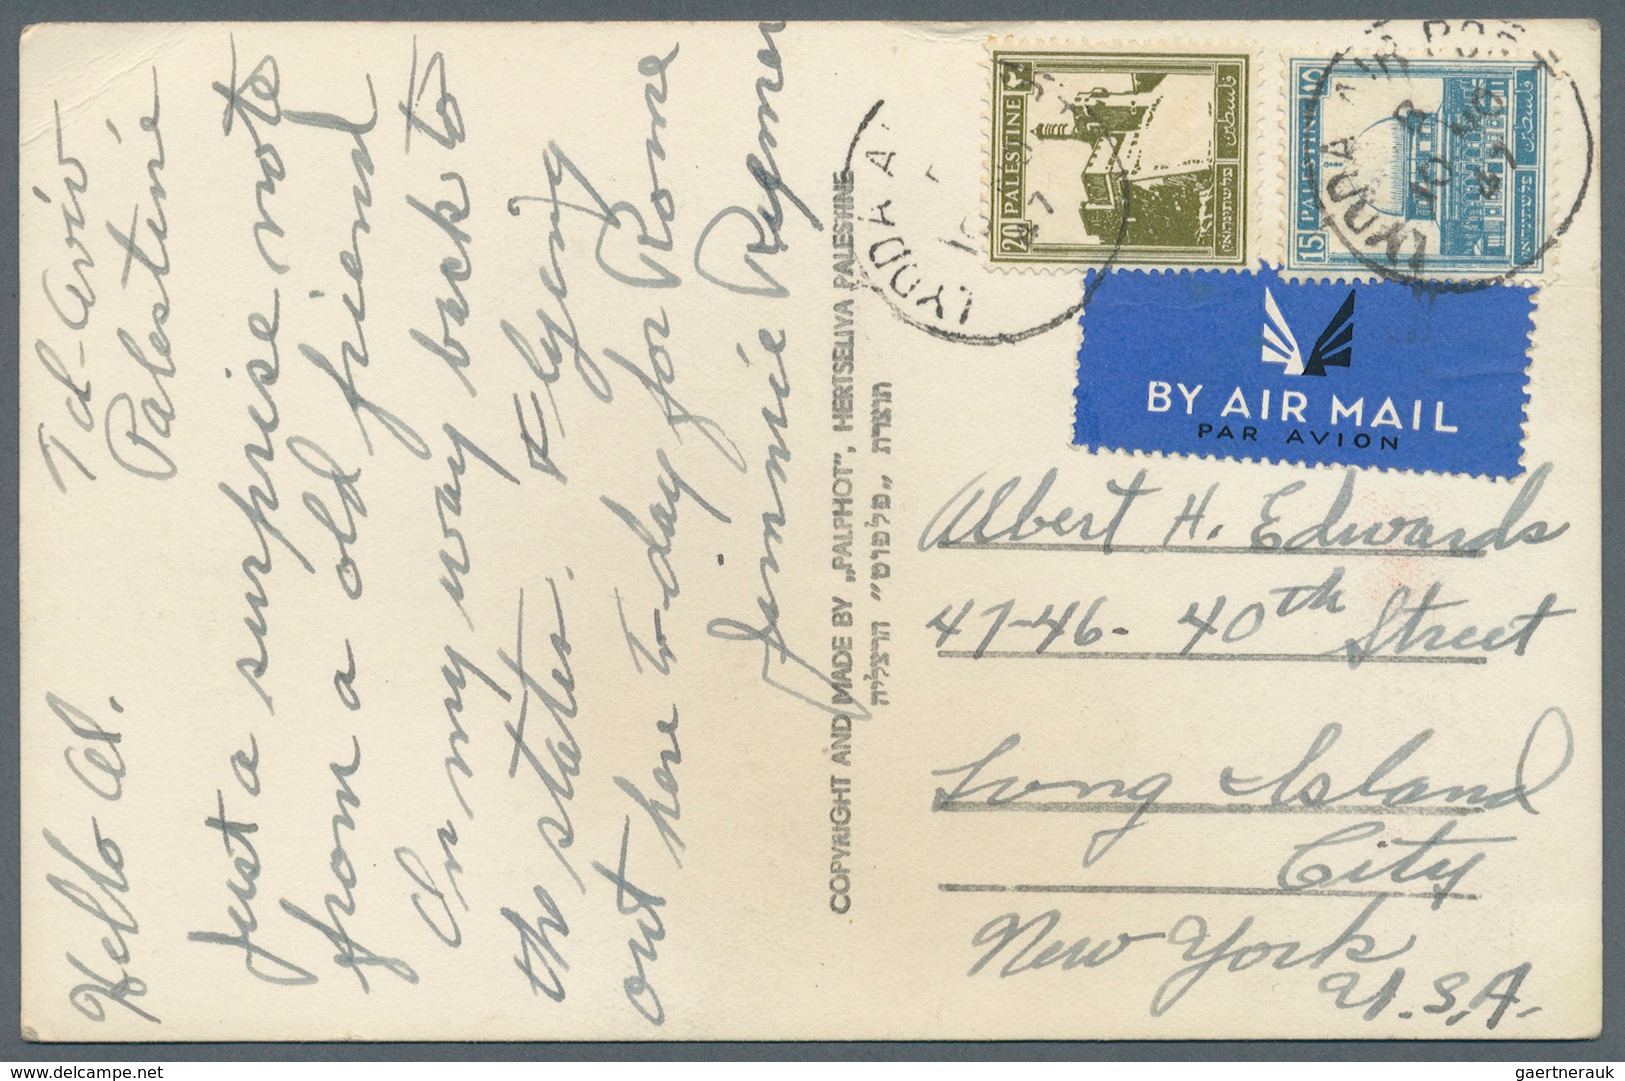 Tel-Aviv
Palestine
Hello Al.
Just a surprise note
from a old friend
On my way back to
the states. Flying
out here to-day for Rome
Jimmie
COPYRIGHT AND MADE BY „PALPHOT”, HERTSELIYA PALESTINE
הוצאת „פלפוט” הרצליה
20 PALESTINE
فلسطين
פלשתינה א״י
15 PALESTINE
فلسطين
פלשתינה א״י
LYDDA A
LYDDA AIR PORT
BY AIR MAIL
PAR AVION
Albert H. Edwards
47-46- 40th Street
Long Island
City
New York
U.S.A.
www.delcampe.net
gaertnerauk